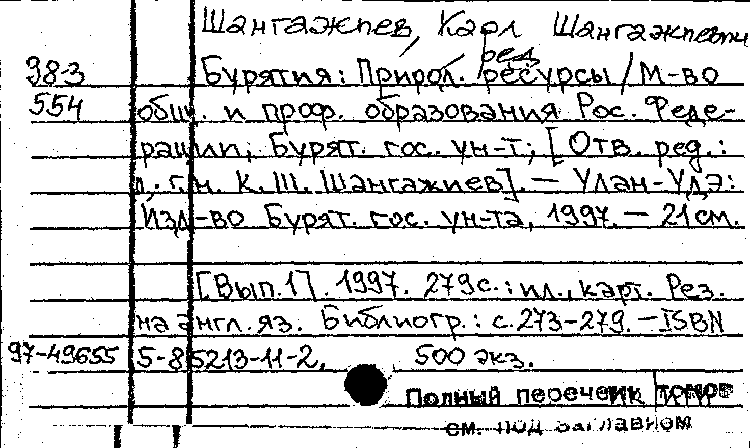 Шангажпев, Карл Шангажпевич
ред.
983 Бурятия: Природ. ресурсы / М-во
554 общ. и проф. образования Рос. Феде-
рации; Бурят. гос. ун-т; [Отв. ред.:
д. г. н. К. Ш. Шангажиев]. — Улан-Удэ:
Изд-во Бурят. гос. ун-та, 1997. — 21 см.
[Вып. 1]. 1997. 279 с.: ил., карт. Рез.
на англ. яз. Библиогр.: с. 273-279. — ISBN
97-49655 5-85213-11-2, 500 экз.
Полный перечень томов
см. под заглавием